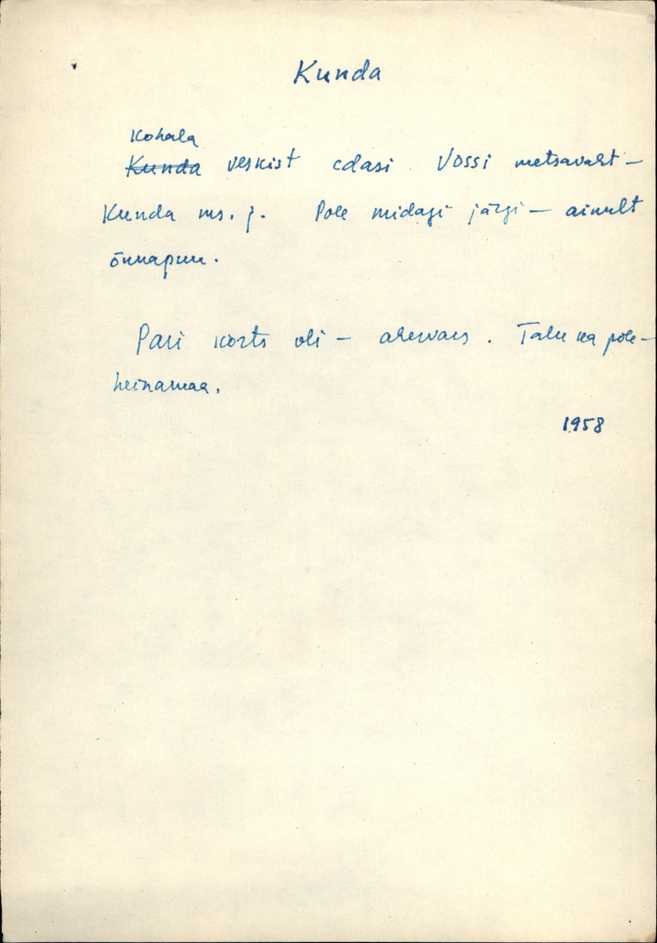 Kunda
Kohala
Kunda veskist edasi Vossi metsavaht —
Kunda ms. j. Pole midagi järgi — ainult
õunapuu.
Pari korts oli — ahervars. Talu ka pole —
heinamaa.
1958